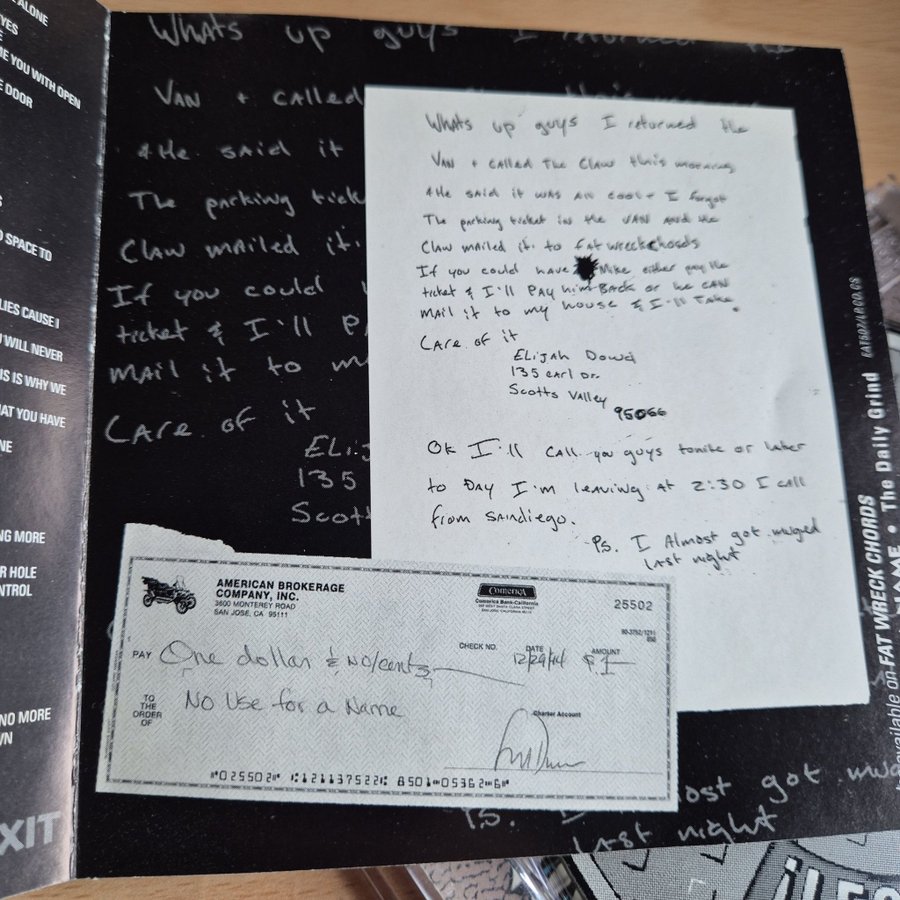 ALONE
YES
ME YOU WITH OPEN
DOOR
SPACE TO
LIES CAUSE I
WILL NEVER
THIS IS WHY WE
WHAT YOU HAVE
NG MORE
HOLE
NO MORE
EXIT
Whats up guys I returned the
Van + called
+He said it
The parking tick
Claw mailed it.
If you could
ticket & I'll Pa
Mail it to m
Care of it
Elij
135
Scott
Whats up guys I returned the
Van + called The Claw this morning
+He said it was all cool + I forgot
The parking ticket in the van and the
Claw mailed it to fat wreckchords
If you could have Mike either pay the
ticket & I'll Pay him Back or he can
Mail it to my house & I'll Take
Care of it
Elijah Dowd
135 Earl Dr.
Scotts Valley
95066
Ok I'll call you guys tonite or later
to Day I'm leaving at 2:30 I call
from Saindiego.
Ps. I Almost got muged
last night
AMERICAN BROKERAGE
COMPANY, INC.
3600 MONTEREY ROAD
SAN JOSE, CA 95111
Comerica
Comerica Bank-California
25502
90-3752/1211
CHECK NO.
DATE
AMOUNT
PAY One dollar & no/cents
$1
TO
THE
ORDER
OF
No Use for a Name
Charter Account
"025502" 121137522 8501 05362 6"
P.S. I
ost got
last night
available on FAT WRECK CHORDS
NAME • The Daily Grind FAT507/LP.CD.CS